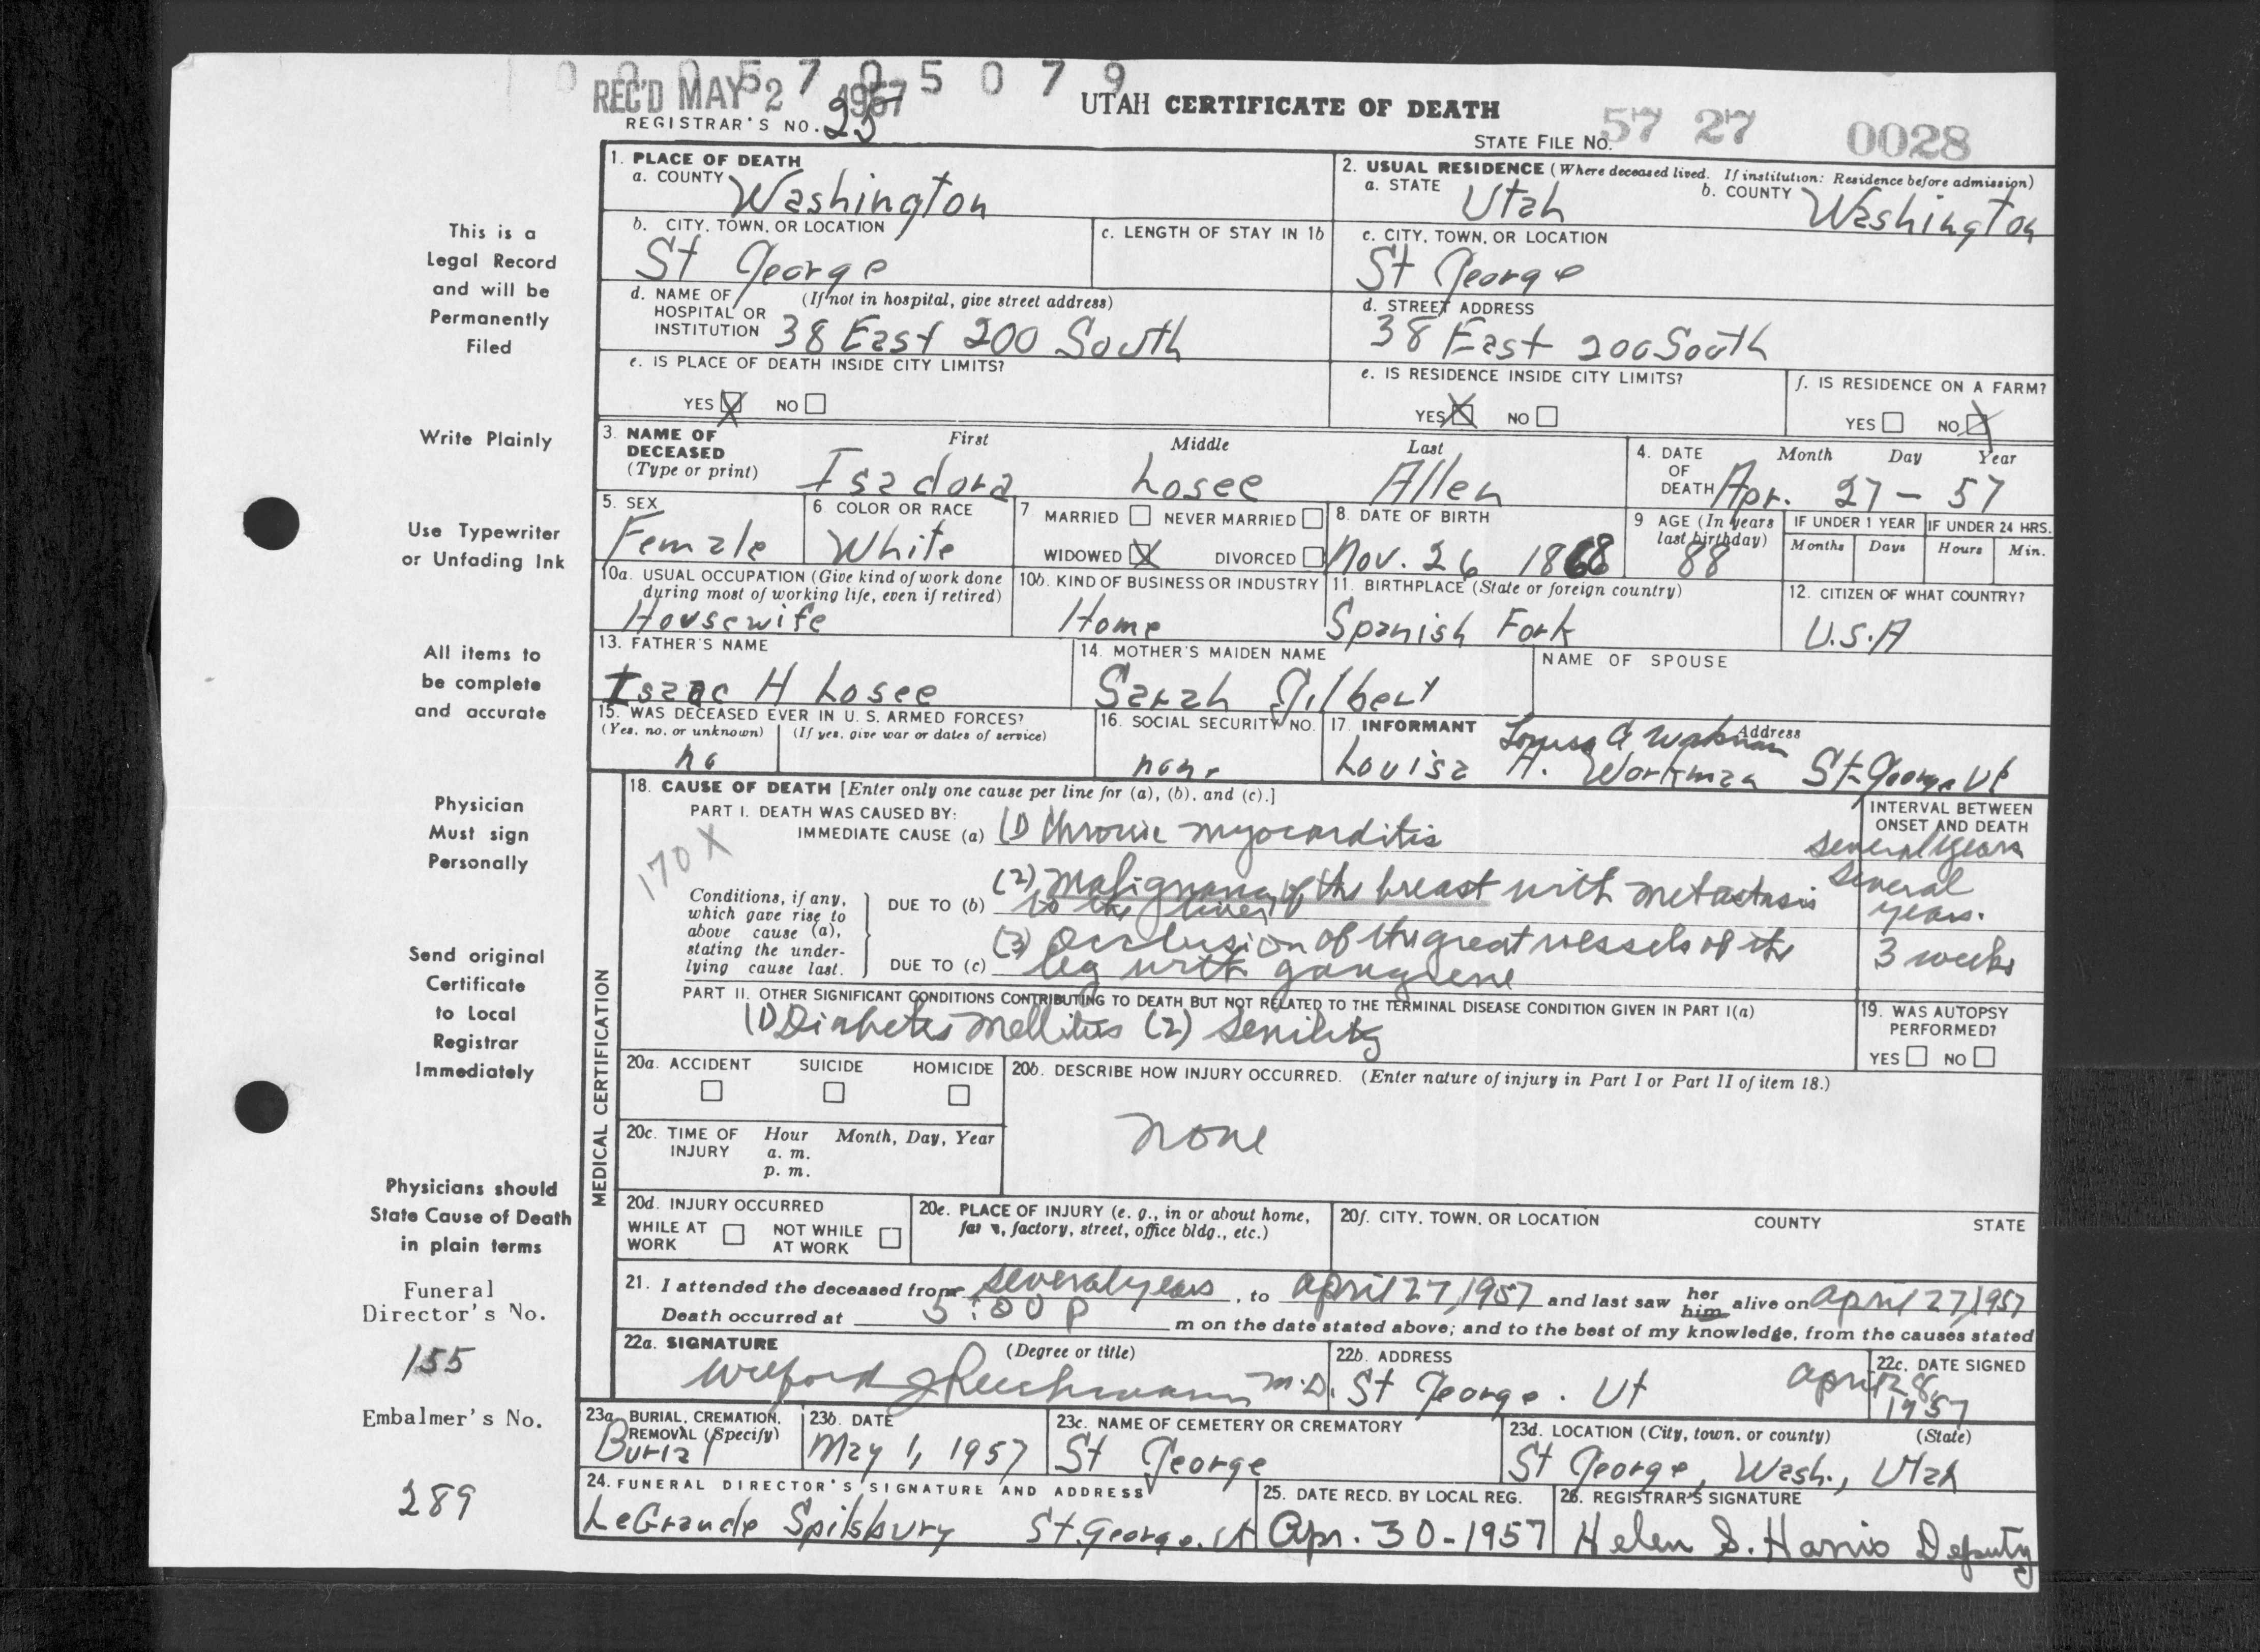 0 0 0 5 7 0 5 0 7 9
REC'D MAY 2 1957
UTAH CERTIFICATE OF DEATH
REGISTRAR'S NO. 25
STATE FILE NO. 57 27 0028
This is a
Legal Record
and will be
Permanently
Filed
Write Plainly
Use Typewriter
or Unfading Ink
All items to
be complete
and accurate
Physician
Must sign
Personally
Send original
Certificate
to Local
Registrar
Immediately
Physicians should
State Cause of Death
in plain terms
Funeral
Director's No.
155
Embalmer's No.
289
1. PLACE OF DEATH
a. COUNTY Washington
b. CITY, TOWN, OR LOCATION
St George
c. LENGTH OF STAY IN 1b
d. NAME OF (If not in hospital, give street address)
HOSPITAL OR
INSTITUTION 38 East 200 South
e. IS PLACE OF DEATH INSIDE CITY LIMITS?
YES X NO
2. USUAL RESIDENCE (Where deceased lived. If institution: Residence before admission)
a. STATE Utah b. COUNTY Washington
c. CITY, TOWN, OR LOCATION
St George
d. STREET ADDRESS
38 East 200 South
e. IS RESIDENCE INSIDE CITY LIMITS?
YES X NO
f. IS RESIDENCE ON A FARM?
YES NO X
3. NAME OF DECEASED (Type or print)
First Middle Last
Isadora Losee Allen
4. DATE OF DEATH Month Day Year
Apr. 27 - 57
5. SEX
Female
6 COLOR OR RACE
White
7 MARRIED NEVER MARRIED
WIDOWED X DIVORCED
8. DATE OF BIRTH
Nov. 26 1868
9 AGE (In years last birthday)
88
IF UNDER 1 YEAR
Months Days
IF UNDER 24 HRS.
Hours Min.
10a. USUAL OCCUPATION (Give kind of work done
during most of working life, even if retired)
Housewife
10b. KIND OF BUSINESS OR INDUSTRY
Home
11. BIRTHPLACE (State or foreign country)
Spanish Fork
12. CITIZEN OF WHAT COUNTRY?
U.S.A
13. FATHER'S NAME
Isaac H Losee
14. MOTHER'S MAIDEN NAME
Sarah Gilbert
NAME OF SPOUSE
15. WAS DECEASED EVER IN U. S. ARMED FORCES?
(Yes, no, or unknown) (If yes, give war or dates of service)
no
16. SOCIAL SECURITY NO.
none
17. INFORMANT Address
Louisa A Workman
Louisa A. Workman St. George Ut
MEDICAL CERTIFICATION
18. CAUSE OF DEATH [Enter only one cause per line for (a), (b), and (c).]
PART I. DEATH WAS CAUSED BY:
IMMEDIATE CAUSE (a) (1) Chronic myocarditis
INTERVAL BETWEEN
ONSET AND DEATH
several years
170 X
Conditions, if any,
which gave rise to
above cause (a),
stating the under-
lying cause last.
DUE TO (b) (2) malignancy of the breast with metastasis
to the liver
several
years.
DUE TO (c) (3) Occlusion of the great vessels of the
leg with gangrene
3 weeks
PART II. OTHER SIGNIFICANT CONDITIONS CONTRIBUTING TO DEATH BUT NOT RELATED TO THE TERMINAL DISEASE CONDITION GIVEN IN PART I(a)
(1) Diabetes Mellitus (2) Senility
19. WAS AUTOPSY
PERFORMED?
YES NO
20a. ACCIDENT SUICIDE HOMICIDE
20b. DESCRIBE HOW INJURY OCCURRED. (Enter nature of injury in Part I or Part II of item 18.)
none
20c. TIME OF Hour Month, Day, Year
INJURY a. m.
p. m.
20d. INJURY OCCURRED
WHILE AT WORK NOT WHILE AT WORK
20e. PLACE OF INJURY (e. g., in or about home,
farm, factory, street, office bldg., etc.)
20f. CITY, TOWN, OR LOCATION COUNTY STATE
21. I attended the deceased from several years, to april 27, 1957 and last saw her him alive on april 27, 1957
Death occurred at 5:00 P m on the date stated above; and to the best of my knowledge, from the causes stated
22a. SIGNATURE (Degree or title)
Wilford J Reichmann M.D.
22b. ADDRESS
St George. Ut
22c. DATE SIGNED
april 28, 1957
23a. BURIAL, CREMATION,
REMOVAL (Specify)
Burial
23b. DATE
May 1, 1957
23c. NAME OF CEMETERY OR CREMATORY
St George
23d. LOCATION (City, town, or county) (State)
St George, Wash., Utah
24. FUNERAL DIRECTOR'S SIGNATURE AND ADDRESS
LeGrande Spilsbury St. George. Ut
25. DATE RECD. BY LOCAL REG.
Apr. 30-1957
26. REGISTRAR'S SIGNATURE
Helen S. Harris Deputy